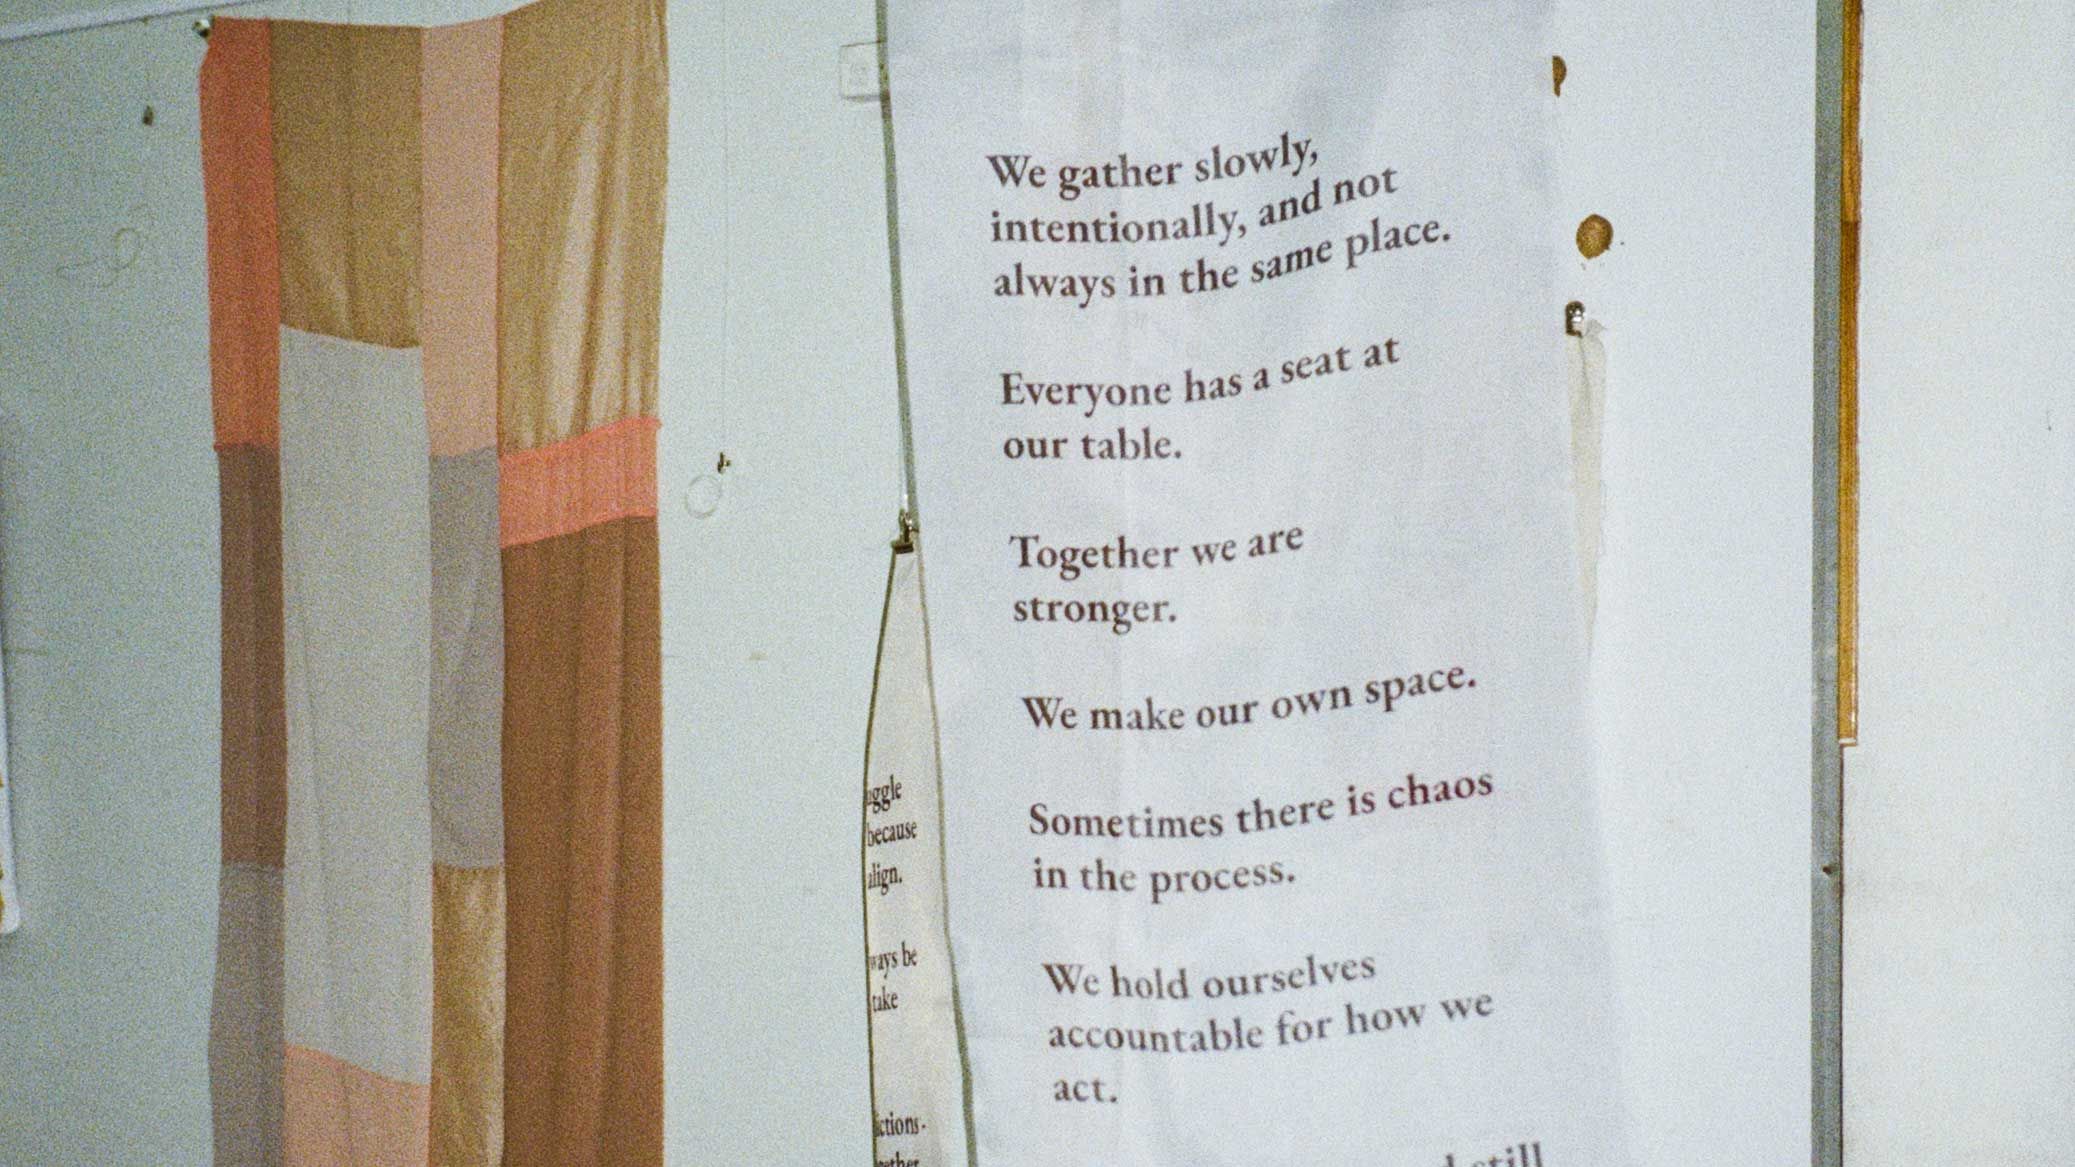 We gather slowly,
intentionally, and not
always in the same place.
Everyone has a seat at
our table.
Together we are
stronger.
We make our own space.
Sometimes there is chaos
in the process.
We hold ourselves
accountable for how we
act.
still
because
align.
be
take